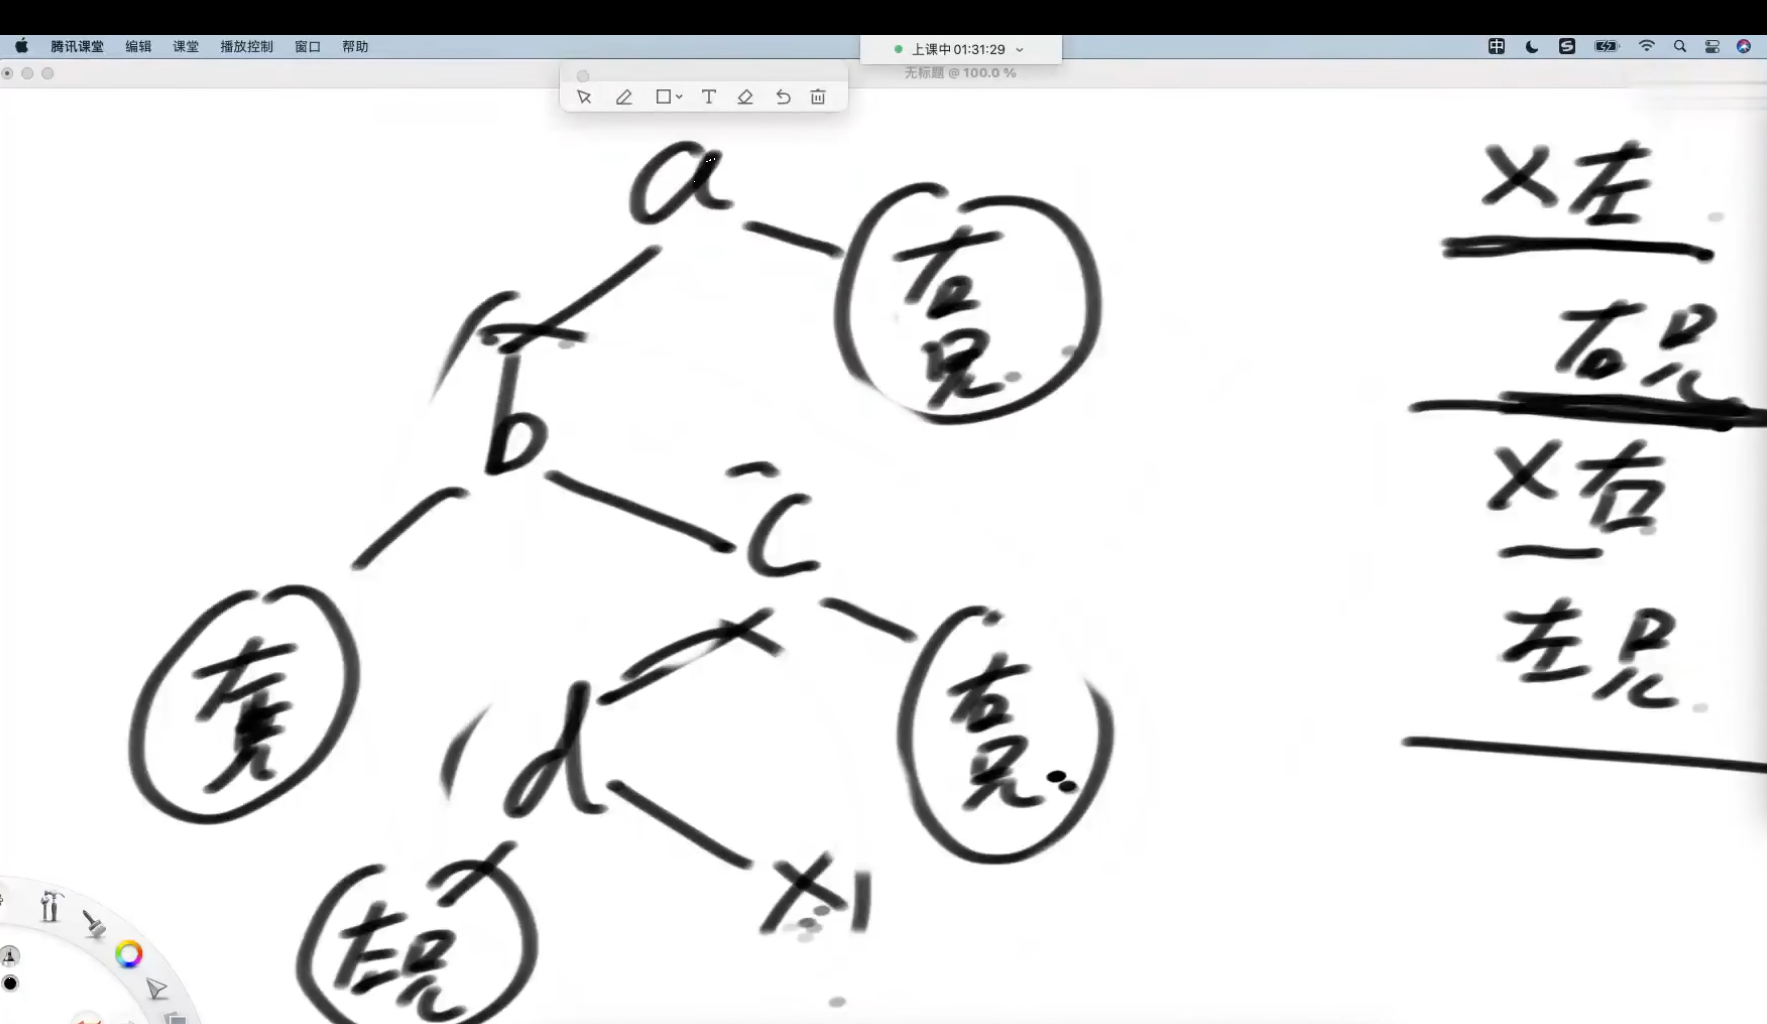 腾讯课堂 编辑 课堂 播放控制 窗口 帮助
上课中 01:31:29
无标题 @ 100.0 %
T
a
右
兄
b
c
左
兄
d
右
兄
X1
左兄
X左
右兄
X右
左兄